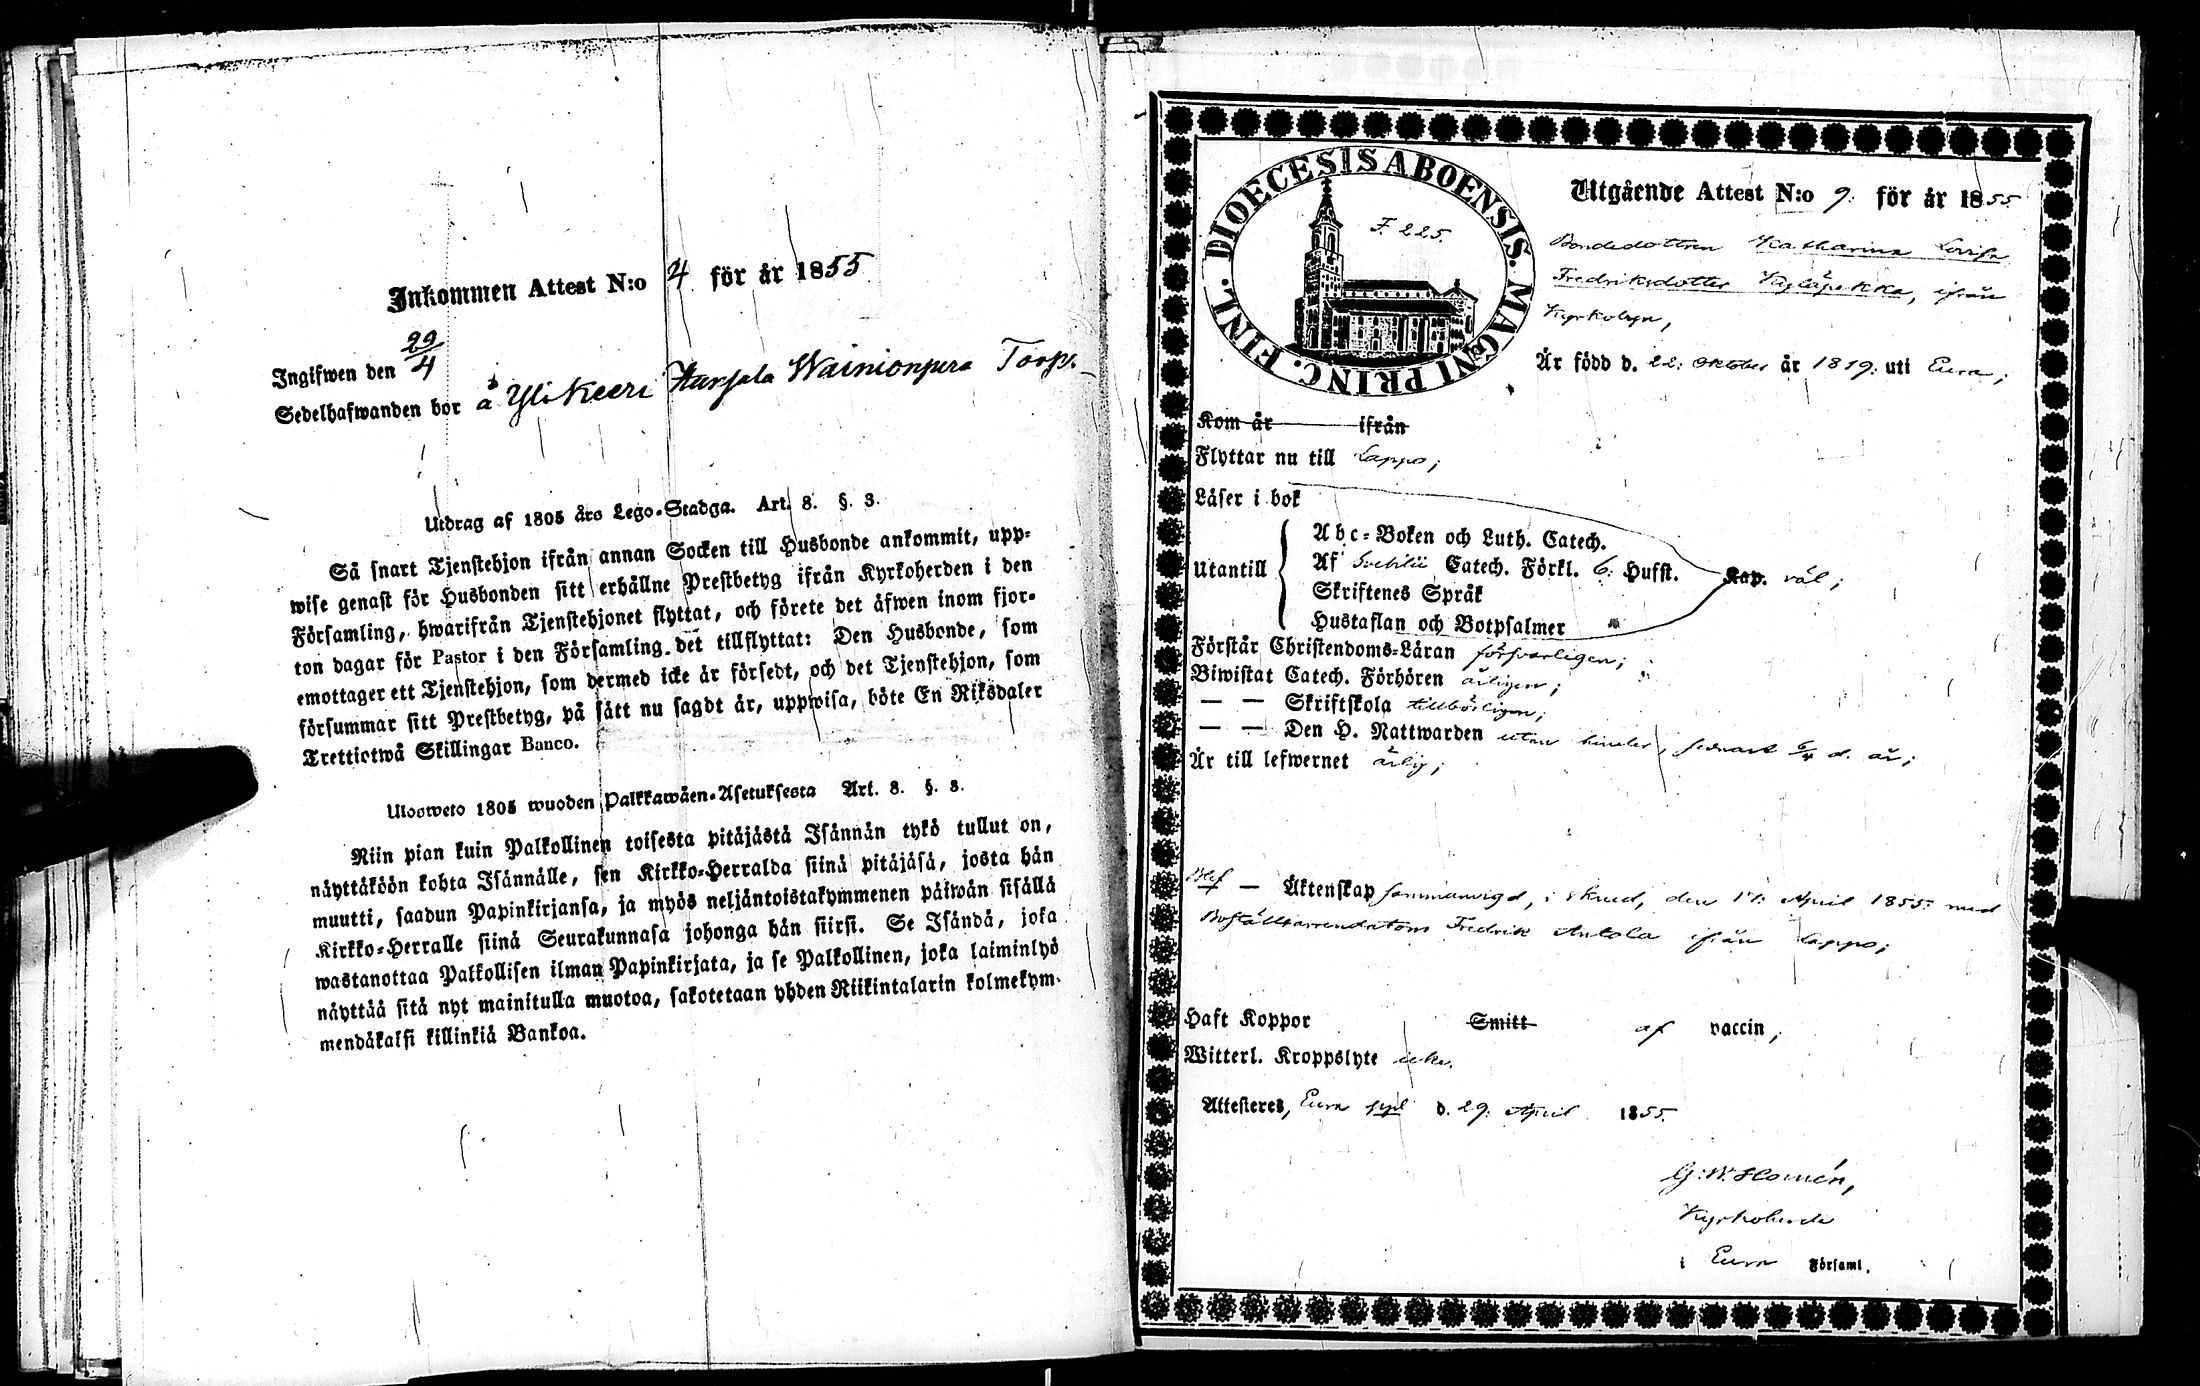 Inkommen Attest N:o 4 för år 1855
Ingifwen den 29/4
Sedelhafwanden bor å Yli Keeri Wainionpera Torp.
Utdrag af 1805 års Lego-Stadga. Art. 8. §. 3.
Så snart Tjenstehjon ifrån annan Socken till Husbonde ankommit, upp-
wise genast för Husbonden sitt erhållne Prestbetyg ifrån Kyrkoherden i den
Församling, hwarifrån Tjenstehjonet flyttat, och förete det äfwen inom fjor-
ton dagar för Pastor i den Församling det tillflyttat: Den Husbonde, som
emottager ett Tjenstehjon, som dermed icke är försedt, och det Tjenstehjon, som
försummar sitt Prestbetyg, på sätt nu sagdt är, uppwisa, böte En Riksdaler
Trettiotwå Skillingar Banco.
Ulosweto 1805 wuoden Palkkawäen-Asetuksesta Art. 8. §. 3.
Niin pian kuin Palkollinen toisesta pitäjästä Isännän tykö tullut on,
näyttäköön kohta Isännälle, sen Kirkko-Herralda siinä pitäjäsä, josta hän
muutti, saadun Papinkirjansa, ja myös neljäntoistakymmenen päiwän sisällä
Kirkko-Herralle siinä Seurakunnasa johonga hän siirsi. Se Isändä, joka
wastanottaa Palkollisen ilman Papinkirjata, ja se Palkollinen, joka laiminlyö
näyttää sitä nyt mainitulla muotoa, sakotetaan yhden Riikintalarin kolmekym-
mendäkaksi killinkiä Bankoa.
DIOECESIS ABOENSIS. MAGNI PRINC. FINL.
F. 225.
Utgående Attest N:o 9. för år 1855
Bondedottren Katharina Lovisa
Fredriksdotter, ifrån
Kyrkobyn,
Är född d. 22. Oktober år 1819. uti Eura;
Kom år ifrån
Flyttar nu till Lappo;
Läser i bok
Utantill
Abc-Boken och Luth. Catech.
Af Svebilii Catech. Förkl. 6. Hufst. Kap. väl;
Skriftenes Språk
Hustaflan och Botpsalmer
Förstår Christendoms-Läran försvarligen;
Biwistat Catech. Förhören årligen;
— — Skriftskola tillbörligen;
— — Den H. Nattwarden utan hinder, senast 6/4 d. år;
Är till lefwernet ärlig;
Blef — Äktenskap sammanvigd, i Eura, den 17. April 1855. med
Boställsarrendatorn Fredrik Antola ifrån Lappo;
Haft Koppor Smitt af vaccin;
Witterl. Kroppslyte icke.
Attesteres, Eura d. 29. April 1855.
G. W. Homén,
Kyrkoherde
i Eura Församl.